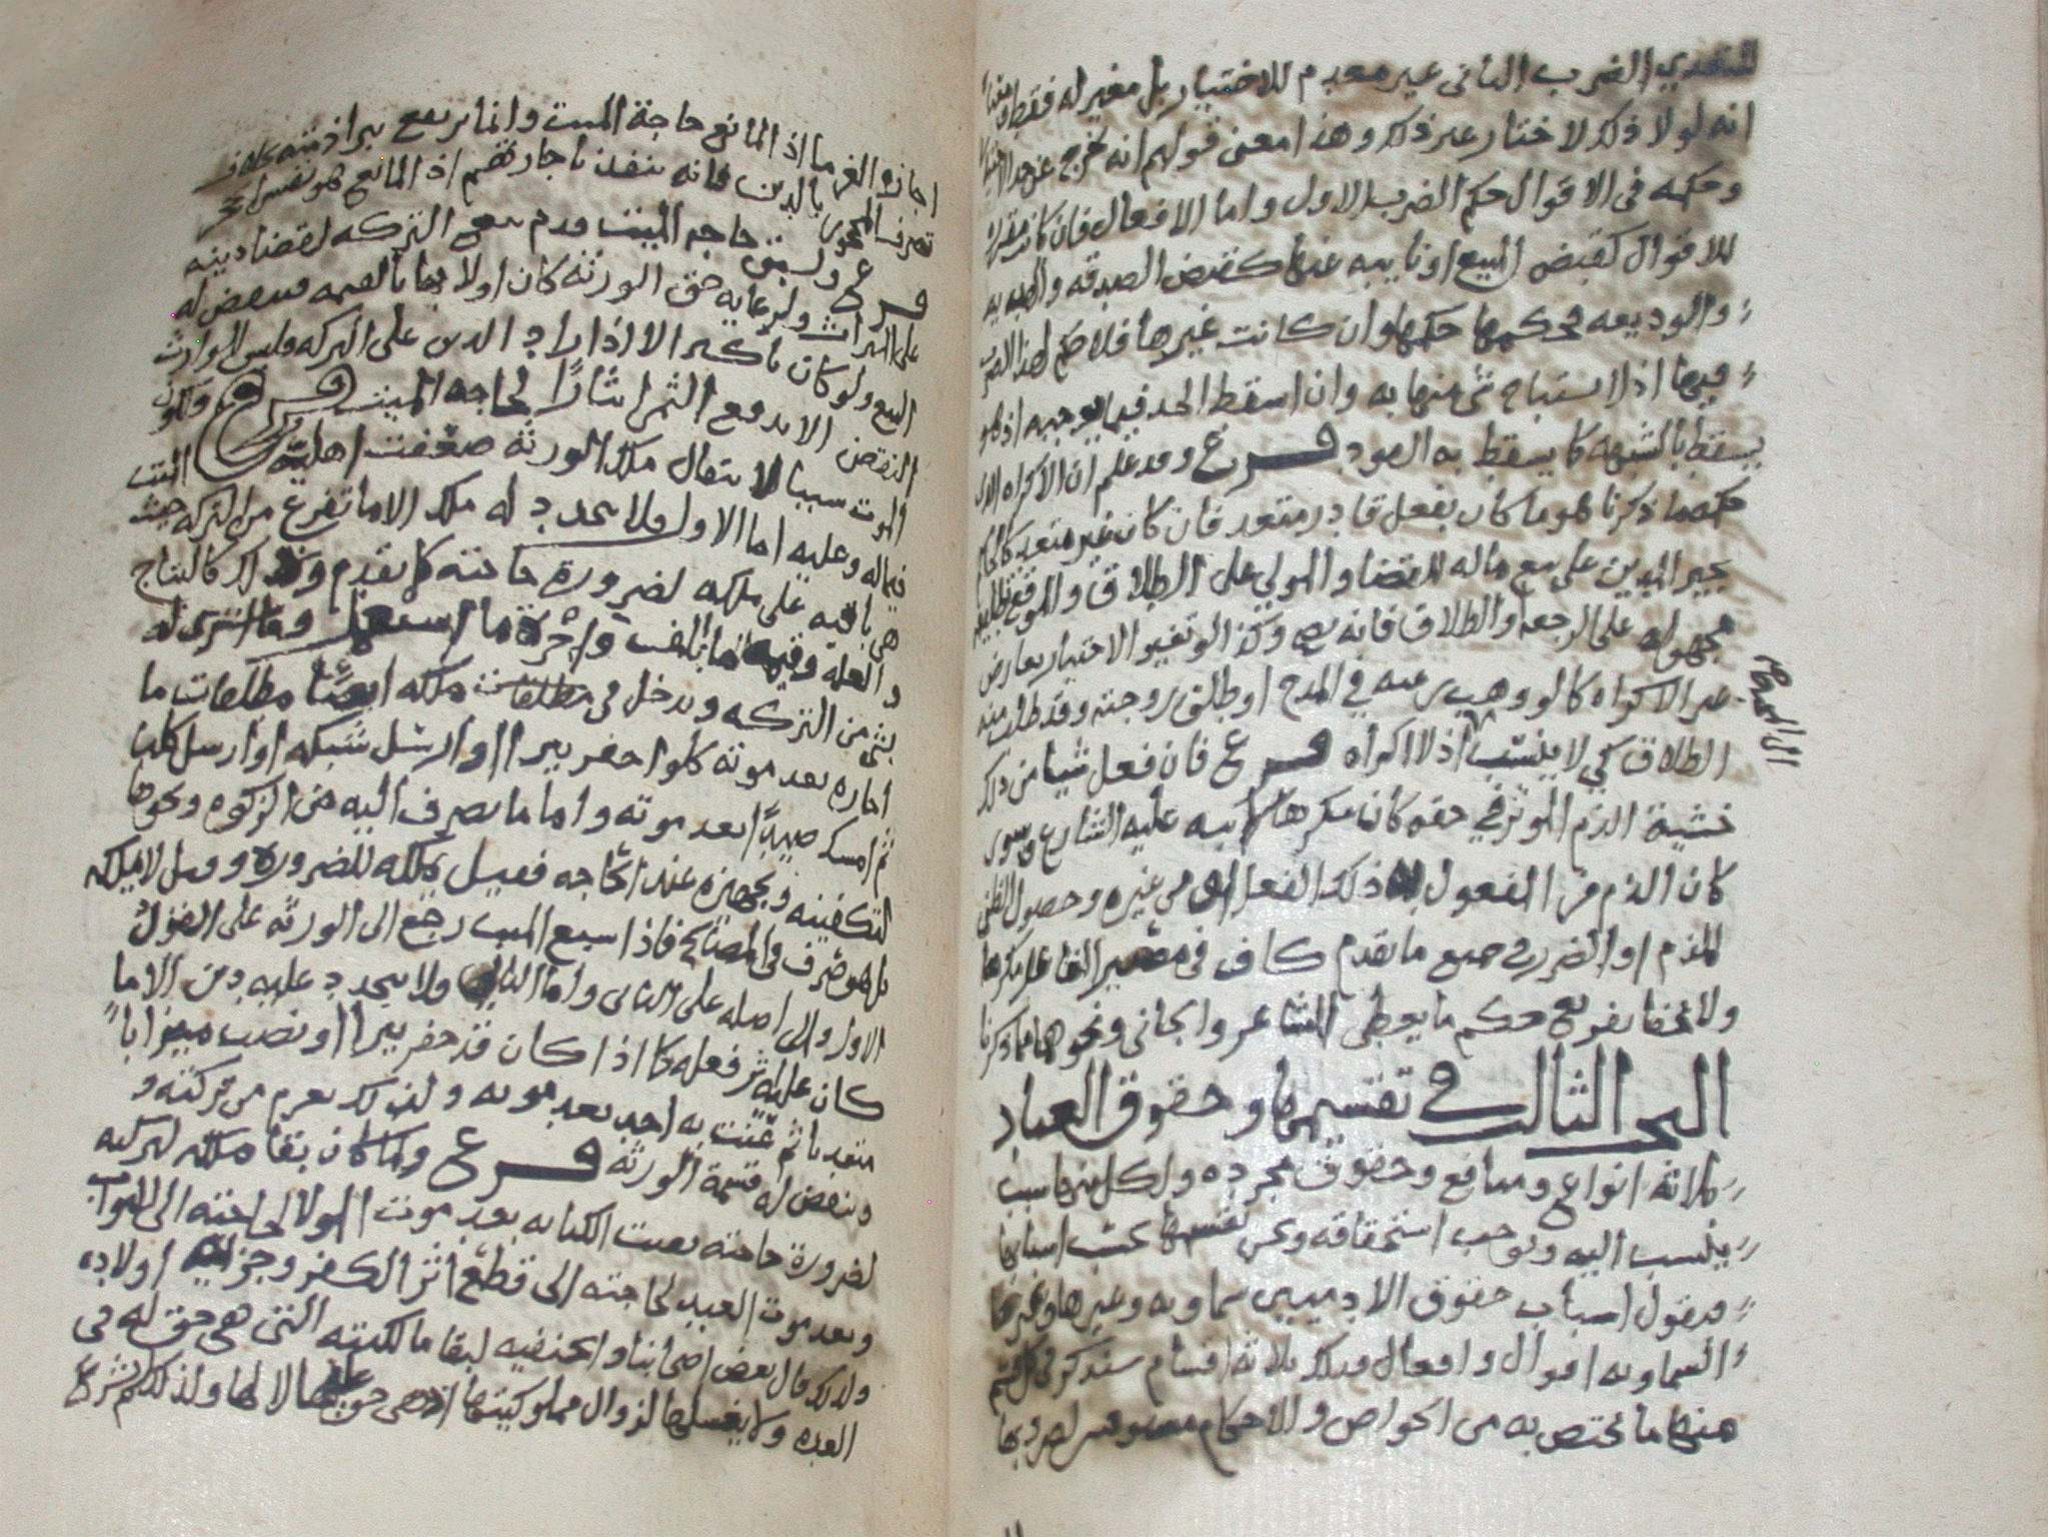 للتعدي الضرب الثاني غير معدم للاختيار بل مغير له فقط
انه لولا ذلك لاختار غير ذلك وهذا معنى قولهم انه يخرج عن حد الاختيار
وحكمه في الاقوال حكم الضرب الاول واما الافعال فان كانت مقررة
للاقوال كقبض المبيع او نايبه عنها كقبض الصدقه والهديه
والوديعه فحكمها حكمها وان كانت غيرها فلا حكم لهذا الضرب
فيها اذ لا يستباح شي منها به وان اسقط الحد فيما يوجبه اذ هو
يسقط بالشبهه كما يسقط به القود فرع وقد علم ان الاكراه الذي
حكمه ما ذكرنا هو ما كان بفعل قادر متعد فان كان غير متعد كالحاكم
يجبر المدين على بيع ماله للقضا والمولي على الطلاق
مجهوله على الرجعه والطلاق فانه يصح وكذا لو تغير الاختيار بعارض
غير الاكراه كما لو وهب رغبه في المدح او طلق زوجته وقد طلب منه
الطلاق كي لا ينسب اذ لا اكراه فرع فان فعل شيا من ذلك
خشية الذم الموثر في حقه كان مكرها نبه عليه الشارع وسوى
كان الذم من المفعول له ذلك الفعل ام من غيره وحصول الظن
للذم او الضرر جميع ما تقدم كاف في مصير الفاعل مكرها
ولا يخفا تفريع حكم ما يعطى الشاعر والجاني ونحوهما مما ذكرنا
البحث الثالث في تقسيمها وحقوق العباد
ثلاثة انواع ومنافع وحقوق مجرده ولكل منها سبب
ينسب اليه ويوجب استحقاقه ونحن نقسمها بحسب اسبابها
فنقول اسباب حقوق الادميين سماويه وغيرها وغير
السماويه اقوال وافعال فتلك ثلاثة اقسام سنذكر في كل قسم
منها ما يختص به من الخواص والاحكام
اجازه الغرما اذ المانع حاجة الميت وانما يرتفع ببراة ذمته بخلاف
تصرف المحجور بالدين فانه ينفذ باجازتهم اذ المانع هو نفس الحجر
فرع ولسبق حاجه الميت قدم بيع التركه لقضا دينه
على الميراث ولرعايه حق الورثه كان اولا بها بالقيمه فينقض له
البيع ولو كان باكثر الا اذا زاد الدين على التركه فليس للوارث
النقض الا بدفع الثمن ايثارًا لحاجه الميت فرع ولكون
الموت سببا لانتقال ملك الورثه ضعفت اهلية الميت
فيما له وعليه اما الاول فلا يتجدد له ملك الا ما تفرع من التركه حيث
هي باقيه على ملكه لضرورة حاجته كما تقدم وذلك كالنتاج
والغله وقيمة ما اتلف واجرة ما استعمل وما اشترى له
بشي من التركه ويدخل في ملكه ايضًا مطلقات ما
اجازه بعد موته كلو احفر بيرا او ارسل شبكه او ارسل كلبا
ثم امسك صيدًا بعد موته واما ما يصرف اليه من الزكوه ونحوها
لتكفينه وتجهيزه عند الحاجه فقيل يملكه للضروره وقيل لا يملكه
بل هو صرف في المصالح فاذا سبع الميت رجع الى الورثه على القول
الاول والى اصله على الثاني واما الثاني فلا يتجدد عليه دين الا ما
كان عليه اثر فعله كما اذا كان قد حفر بيرا او نصب ميزابا
متعديا ثم عنت به احد بعد موته ولذلك يغرم من تركته و
وينقض له قسمة الورثه فرع ولما كان بقا ملكه لتركته
لضرورة حاجته بقيت الكتابه بعد موت المولا لحاجته الى الثواب
وبعد موت العبد لحاجته الى قطع اثر الكفر وجزئية اولاده
ولذلك قال بعض اصحابنا والحنفيه لبقا مالكيته التي هي حق له في
العده ولا يغسلها لزوال مملوكيتها اذ هي حق عليها لا لها ولذلك لم تشرع